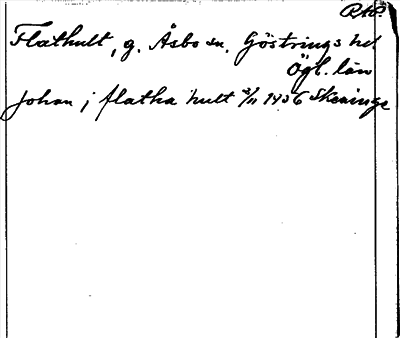 RAP.
Flathult, g. Åsbo sn. Göstrings hd
Ögl. län
Johan j flatha hult 3/11 1436 Skeninge